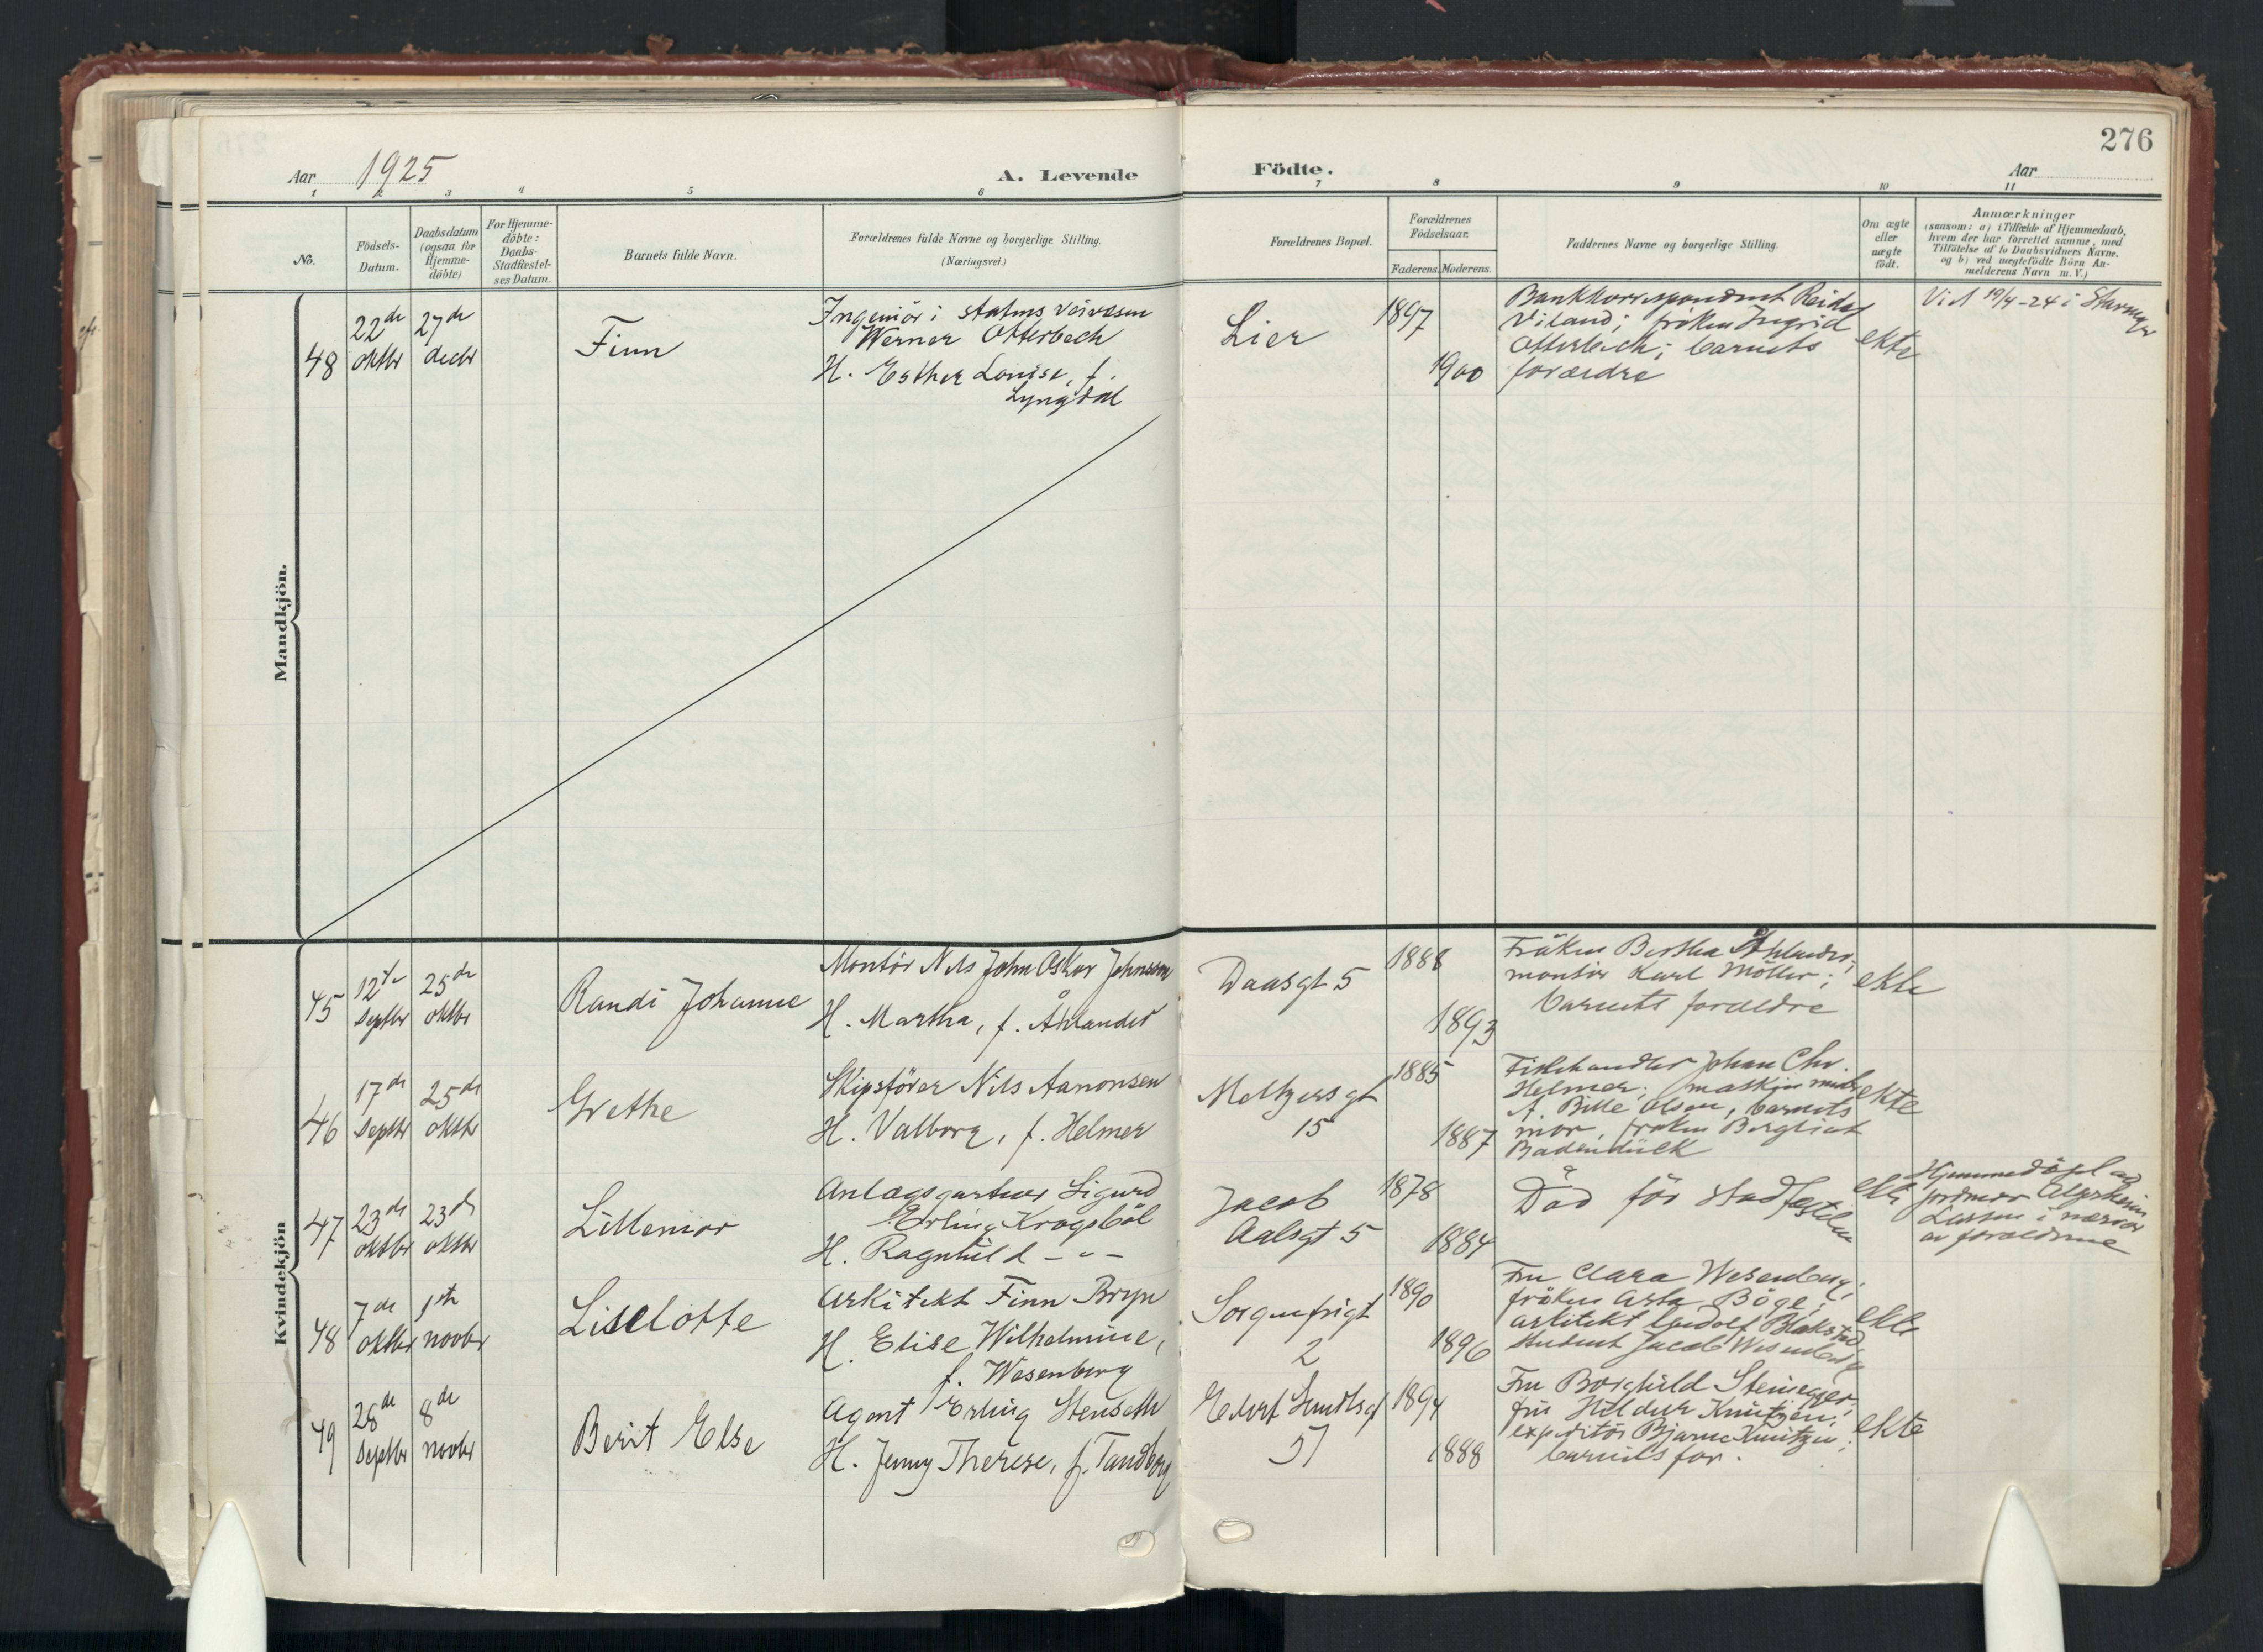 276
Aar 1925
A. Levende Födte.
Aar
1 2 3 4 5 6 7 8 9 10 11
No.
Födsels-
Datum.
Daabsdatum
(ogsaa for
Hjemme-
döbte)
For Hjemme-
döbte:
Daabs-
Stadfæstel-
ses Datum.
Barnets fulde Navn.
Forældrenes fulde Navne og borgerlige Stilling.
(Næringsvei.)
Forældrenes Bopæl.
Forældrenes
Födselsaar.
Faderens. Moderens.
Faddernes Navne og borgerlige Stilling.
Om ægte
eller
uægte
födt.
Anmærkninger
(saasom: a) i Tilfælde af Hjemmedaab,
hvem der har forrettet samme, med
Tilföielse af to Daabsvidners Navne.
og b) ved uægtefödte Börn An-
melderens Navn m. V.)
Mandkjön.
48
22de
oktbr
27de
decbr
Finn
Ingeniör i statens veivesen
Werner Otterbech
H. Esther Louise, f.
Lyngdal
Lier
1897
1900
Bankkorrespondent Reidar
Viland; fröken Ingrid
Otterbech; barnets
forældre
ekte
Vid 19/4-24 i Stavanger
Kvindekjön
45
12te
Septbr
25de
oktbr
Randi Johanne
Montör Nils John Oskar Johnsson
H. Martha, f. Åhlander
Daasgt 5
1888
1893
Fröken Bertha Åhlander;
montör Karl Möller;
barnets forældre
ekte
46
17de
Septbr
25de
oktbr
Grethe
Skipsförer Nils Aanonsen
H. Valborg, f. Helmer
Meltzersgt
15
1885
1887
Fiskehandler Johan Chr.
Helmer; maskin
A. Bille Olsen, barnets
mor, fröken Bergliot
ekte
47
23de
oktbr
23de
oktbr
Lillemor
Anlægsgartner Sigurd
Erling Krogsböl
H. Ragnhild - " -
Jacob
Aalsgt 5
1878
1884
Död för stadfestelsen
ekte
Hjemmedöpt av
jordmor
Larsen i nærvær
av foreldrene
48
7de
oktbr
1ste
novbr
Liselotte
Arkitekt Finn Bryn
H. Elise Wilhelmine,
f. Wesenberg
Sorgenfrigt
2
1890
1896
Fru Clara Wesenberg;
fröken Asta Böge;
arkitekt Gudolf Blakstad;
student Jacob Wesenberg
ekte
49
28de
Septbr
8de
novbr
Berit Else
Agent Erling Stenseth
H. Jenny Therese, f. Tandberg
Eilert Sundtsgt
51
1894
1888
Fru Borghild Steinegger;
fru Hildur Knutzen;
expeditör Bjarne Knutzen;
barnets far.
ekte